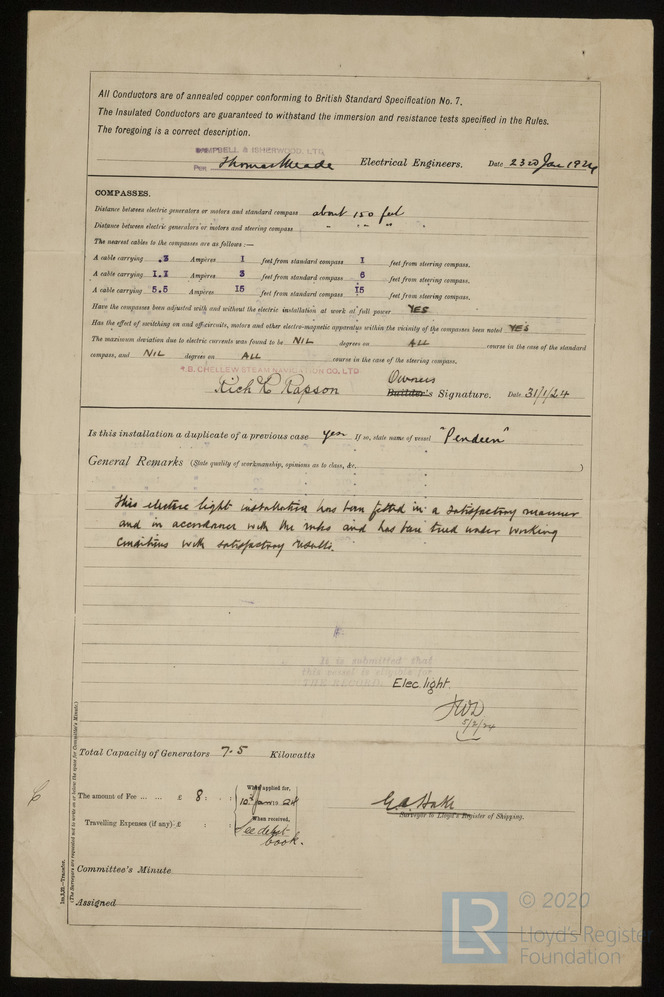 All Conductors are of annealed copper conforming to British Standard Specification No. 7.
The Insulated Conductors are guaranteed to withstand the immersion and resistance tests specified in the Rules.
The foregoing is a correct description.
CAMPBELL & ISHERWOOD, LTD.
Per Thomas Meade Electrical Engineers. Date 23rd Jan 1924
COMPASSES.
Distance between electric generators or motors and standard compass about 150 feet
Distance between electric generators or motors and steering compass " " "
The nearest cables to the compasses are as follows :—
A cable carrying .3 Ampères 1 feet from standard compass 1 feet from steering compass.
A cable carrying 1.1 Ampères 3 feet from standard compass 6 feet from steering compass.
A cable carrying 5.5 Ampères 15 feet from standard compass 15 feet from steering compass.
Have the compasses been adjusted with and without the electric installation at work at full power YES
Has the effect of switching on and off circuits, motors and other electro-magnetic apparatus within the vicinity of the compasses been noted YES
The maximum deviation due to electric currents was found to be NIL degrees on ALL course in the case of the standard
compass, and NIL degrees on ALL course in the case of the steering compass.
R.B. CHELLEW STEAM NAVIGATION CO. LTD
Owners
Rich K Rapson Builder's Signature. Date 31/1/24
Is this installation a duplicate of a previous case yes If so, state name of vessel "Pendeen"
General Remarks (State quality of workmanship, opinions as to class, &c. )
This electric light installation has been fitted in a satisfactory manner
and in accordance with the rules and has been tried under working
conditions with satisfactory results.
It is submitted that
this vessel is eligible for
THE RECORD. Elec. light.
5/2/24
Total Capacity of Generators 7.5 Kilowatts
The amount of Fee ... ... £ 8 : :
When applied for,
10 Jan 19 24
When received,
Travelling Expenses (if any) £ : :
See debit
book.
Surveyor to Lloyd's Register of Shipping.
Committee's Minute
Assigned
(The Surveyors are requested not to write on or below the space for Committee's Minute.)
Transfer.
LR
© 2020
Lloyd's Register
Foundation